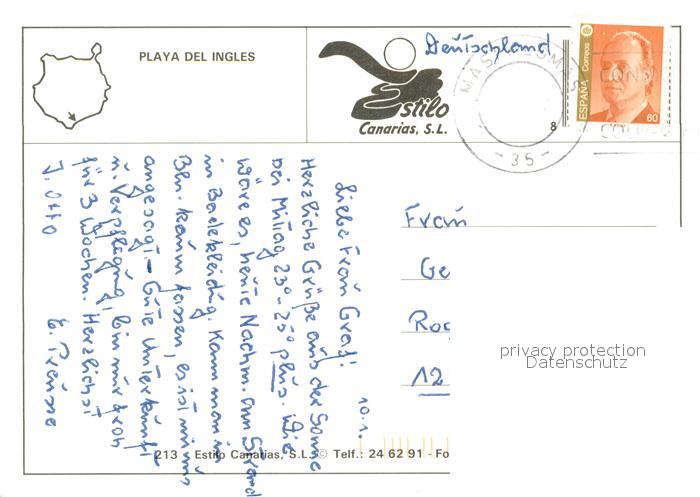 PLAYA DEL INGLES
Estilo
Canarias, S.L.
Deutschland
MASPALOMAS
- 35 -
8
ESPAÑA Correos
60
10.1.
Liebe Frau Graf!
Herzliche Grüße aus der Sonne
bei Mittag 23°-25° plus. Wie
wäre es, heute Nachm. am Strand
in Badekleidg. Kann man in
Bln. kaum fassen, es ist minus
angesagt. - Gute Unterkunft
u. Verpflegung, bin nur froh
für 3 Wochen. Herzlichst
J. Otto E. Preusse
Frau
Ge
Ro
12
privacy protection
Datenschutz
213 - Estilo Canarias, S.L. © Telf.: 24 62 91 - Fo